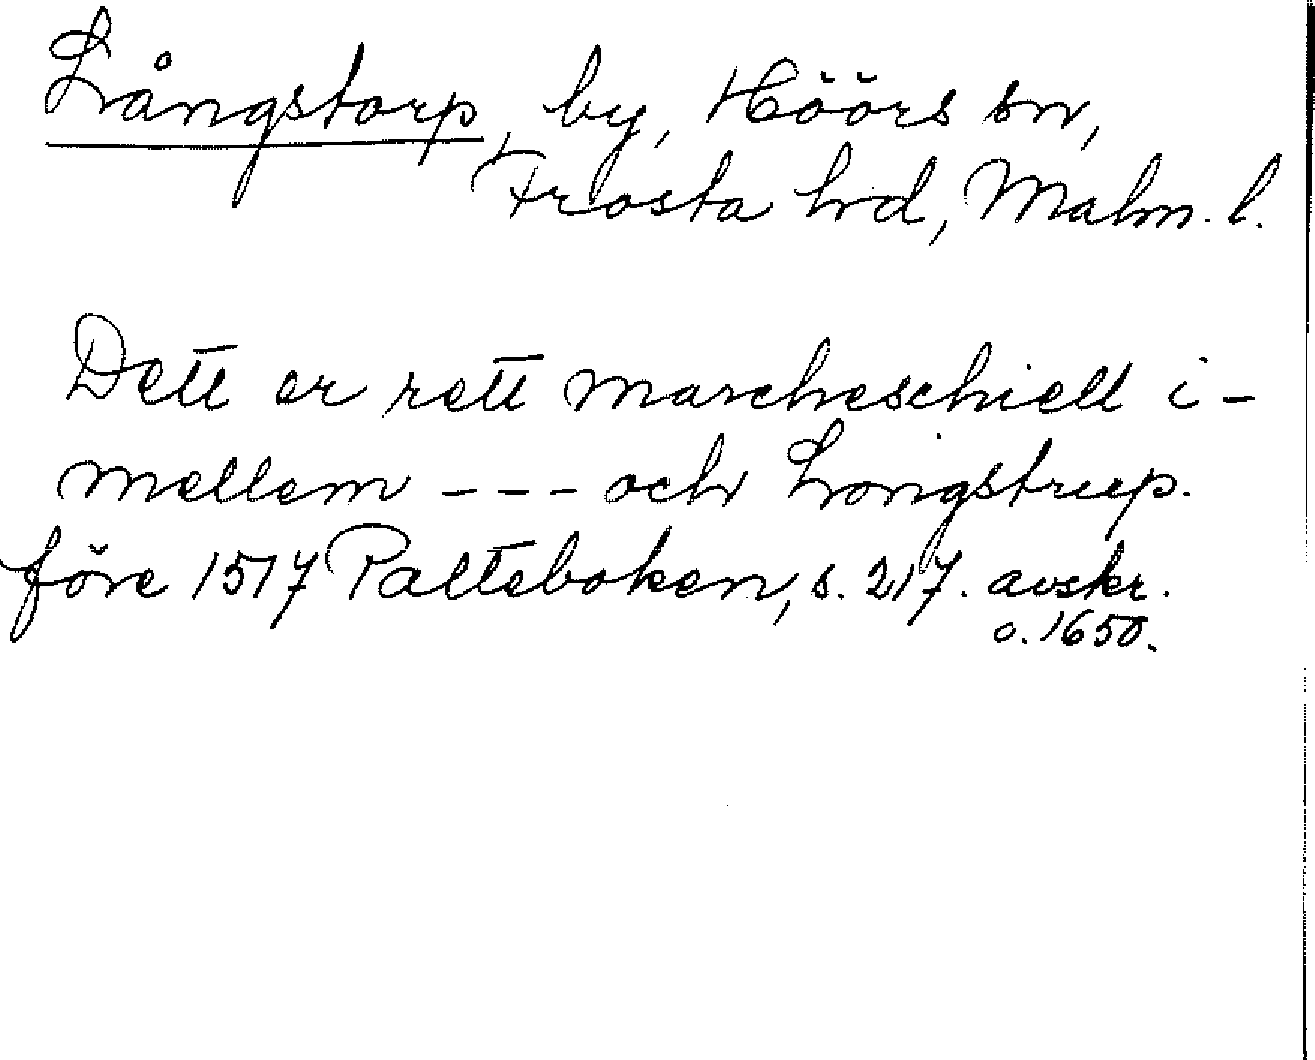 Långstorp, by, Höörs sn,
Frosta hrd, Malm. l.
Dett er rett marcheschiell i-
mellem --- och Longstrup.
före 1517 Palteboken, s. 217. avskr.
o. 1650.